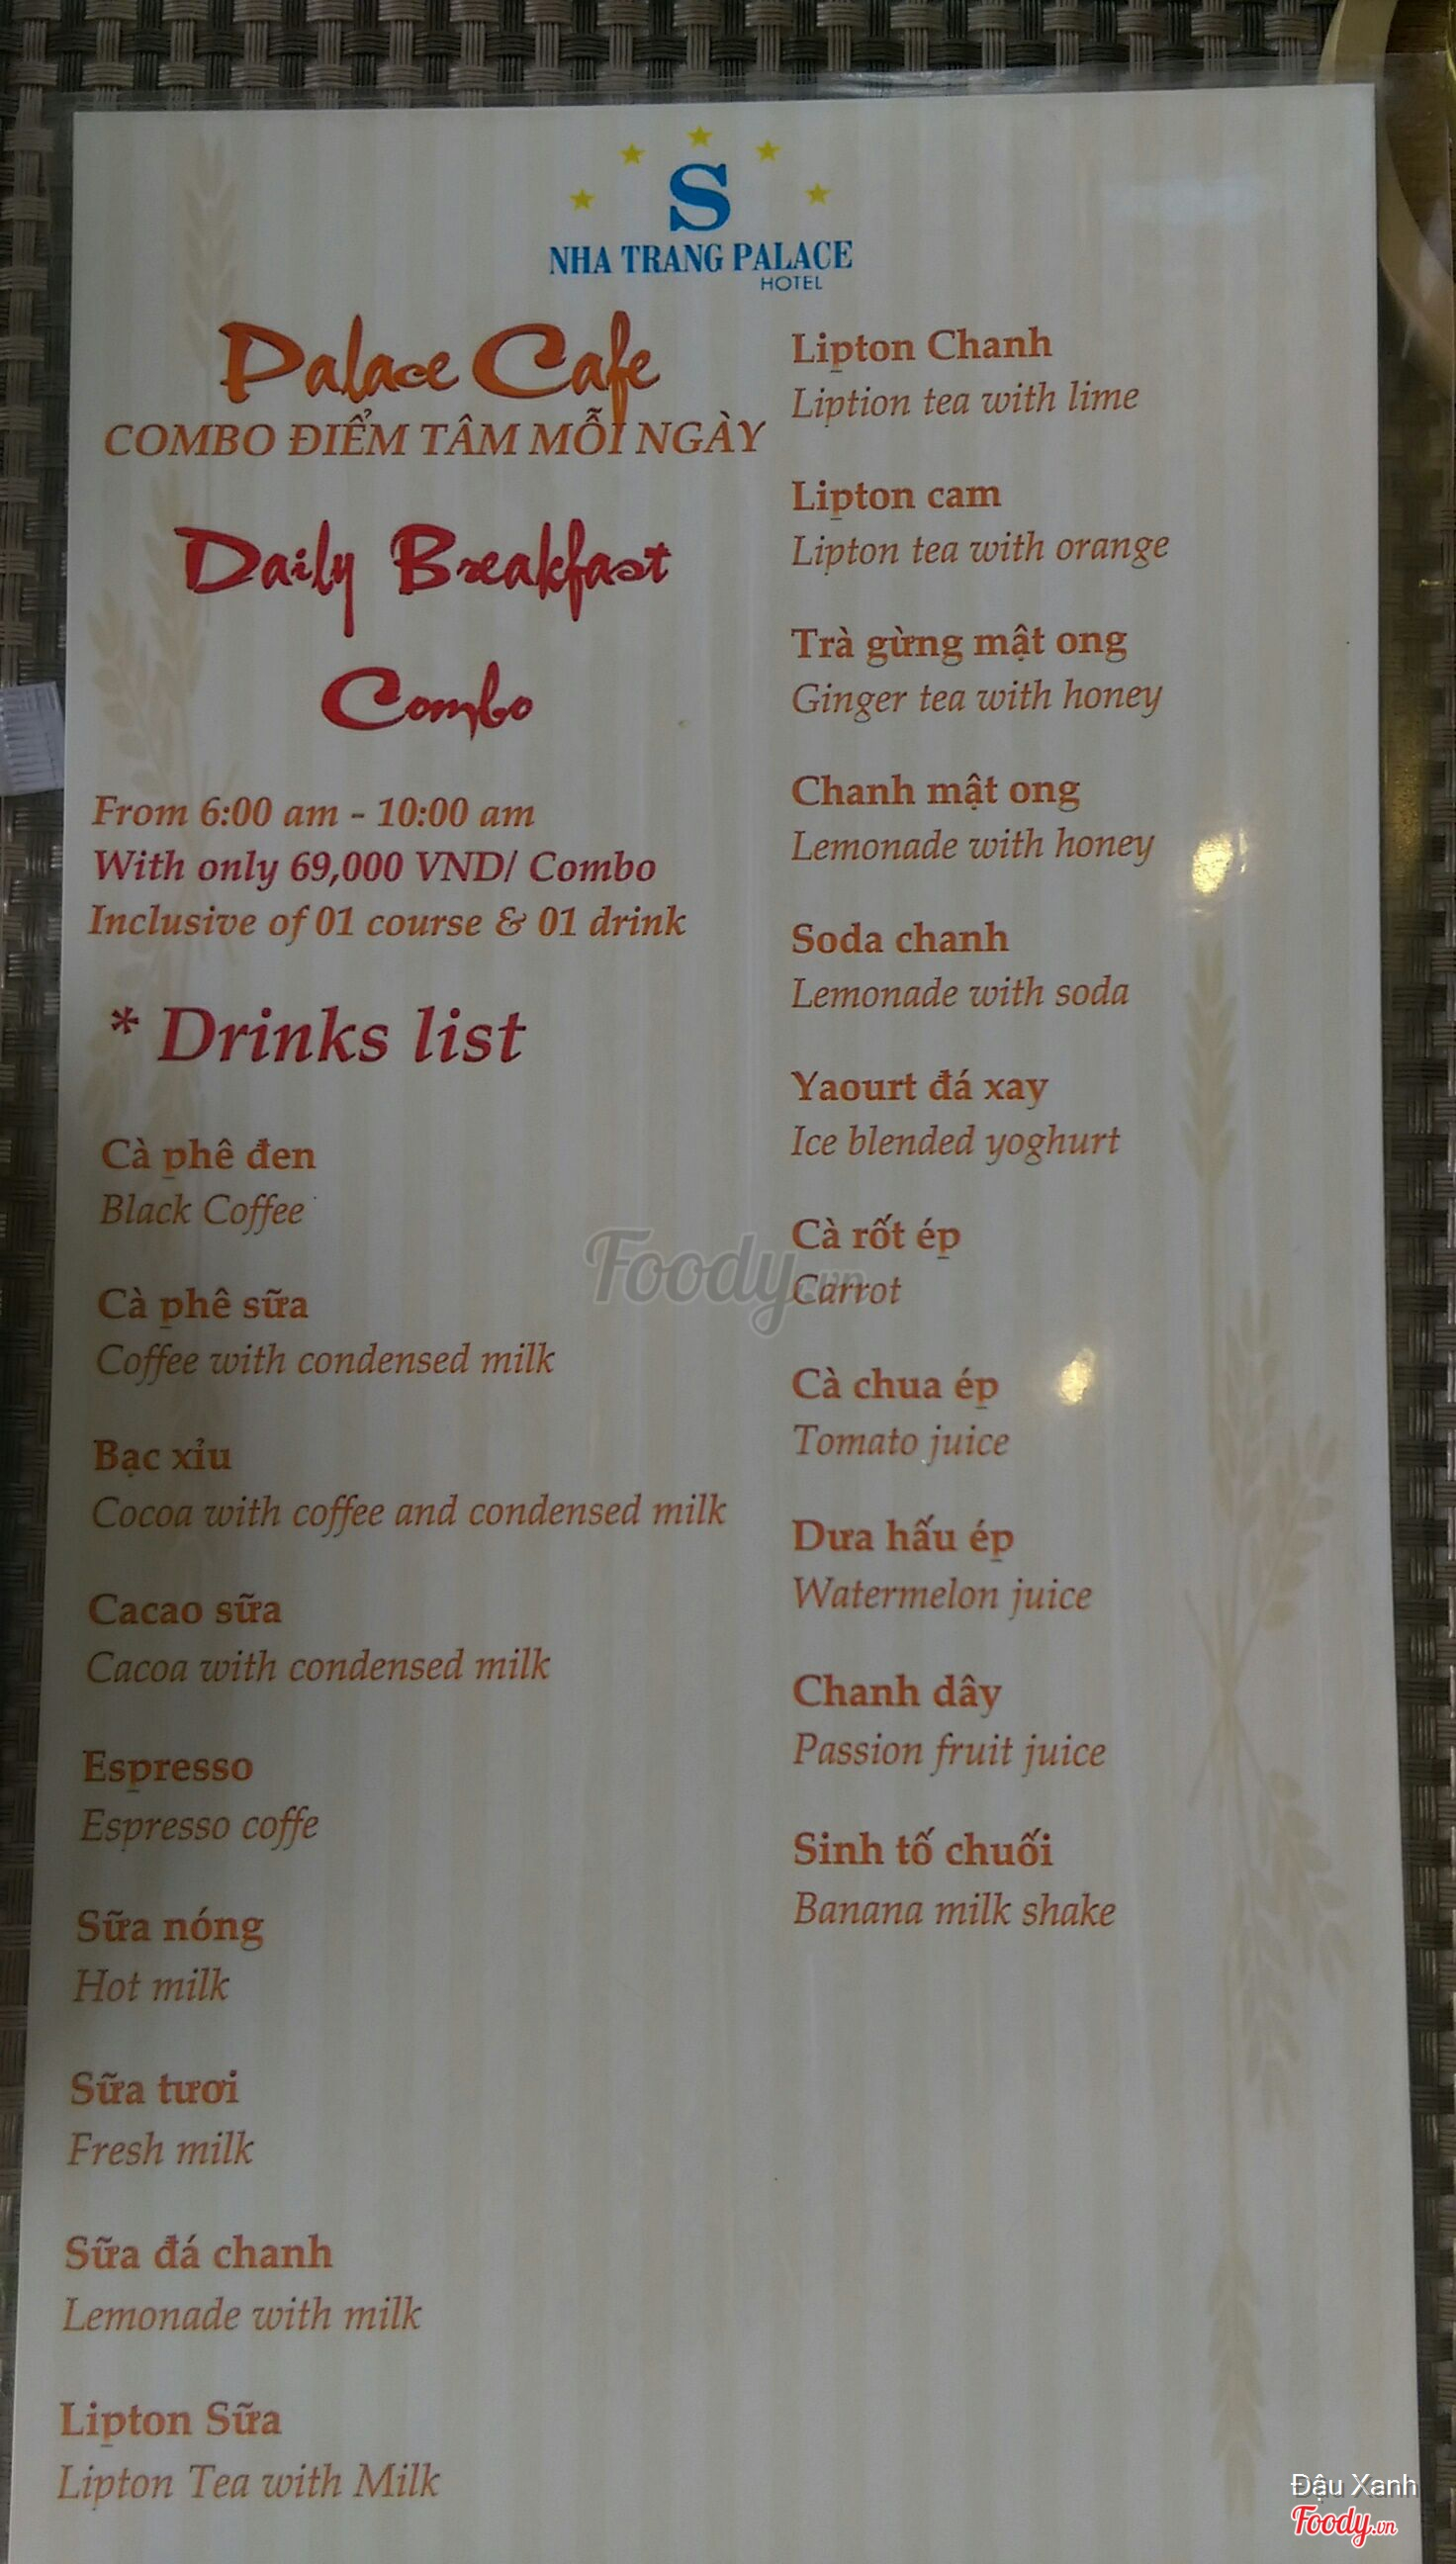 S
NHA TRANG PALACE
HOTEL
Palace Cafe
COMBO ĐIỂM TÂM MỖI NGÀY
Daily Breakfast
Combo
From 6:00 am - 10:00 am
With only 69,000 VND/ Combo
Inclusive of 01 course & 01 drink
* Drinks list
Cà phê đen
Black Coffee
Cà phê sữa
Coffee with condensed milk
Bạc xỉu
Cocoa with coffee and condensed milk
Cacao sữa
Cacoa with condensed milk
Espresso
Espresso coffe
Sữa nóng
Hot milk
Sữa tươi
Fresh milk
Sữa đá chanh
Lemonade with milk
Lipton Sữa
Lipton Tea with Milk
Lipton Chanh
Liption tea with lime
Lipton cam
Lipton tea with orange
Trà gừng mật ong
Ginger tea with honey
Chanh mật ong
Lemonade with honey
Soda chanh
Lemonade with soda
Yaourt đá xay
Ice blended yoghurt
Cà rốt ép
Carrot
Cà chua ép
Tomato juice
Dưa hấu ép
Watermelon juice
Chanh dây
Passion fruit juice
Sinh tố chuối
Banana milk shake
Foody.vn
Đậu Xanh
Foody.vn